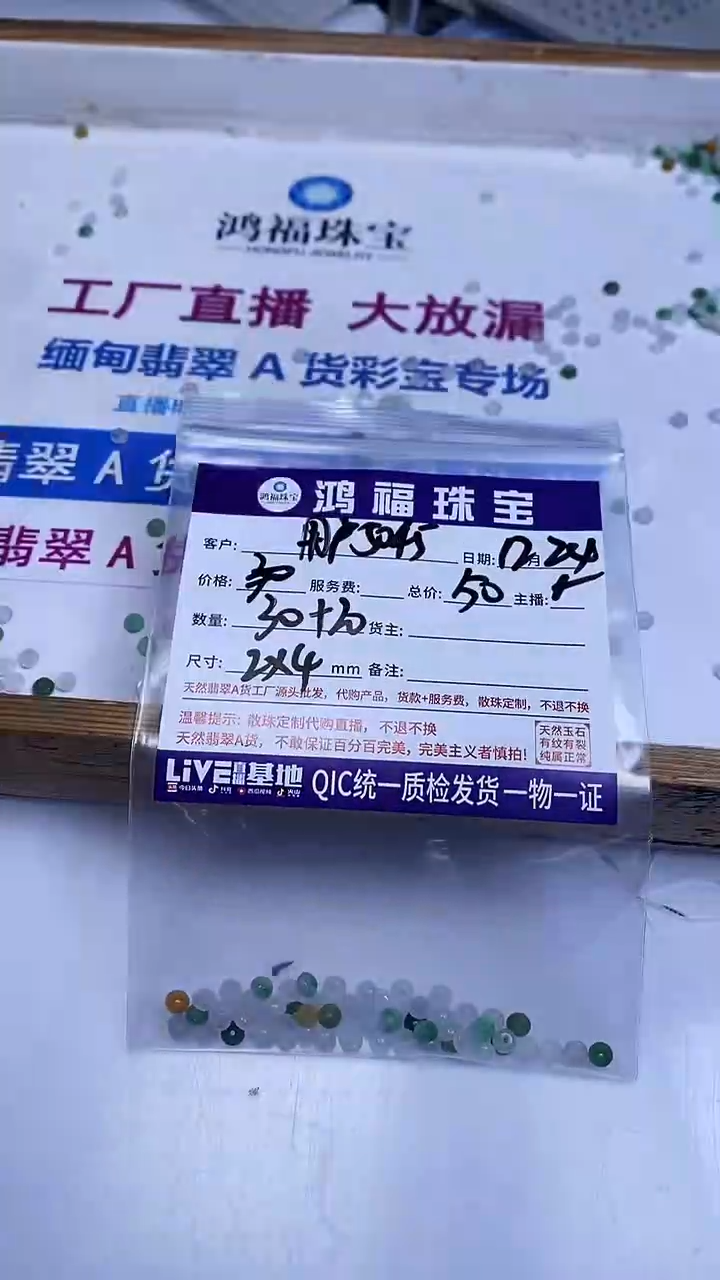 鸿福珠宝
HONGFU JEWELRY
工厂直播 大放漏
缅甸翡翠 A 货彩宝专场
直播
翡翠 A 货
翡翠 A
鸿福珠宝
鸿福珠宝
客户: 用户5045 日期: 12月24
价格: 30 服务费: 总价: 50 主播:
数量: 30+20 货主:
尺寸: 2x4 mm 备注:
天然翡翠A货工厂源头批发，代购产品，货款+服务费，散珠定制，不退不换
温馨提示: 散珠定制代购直播，不退不换
天然翡翠A货，不敢保证百分百完美，完美主义者慎拍!
天然玉石
有纹有裂
纯属正常
LiVE直播基地 QIC统一质检发货一物一证
今日头条 抖音 西瓜视频 火山